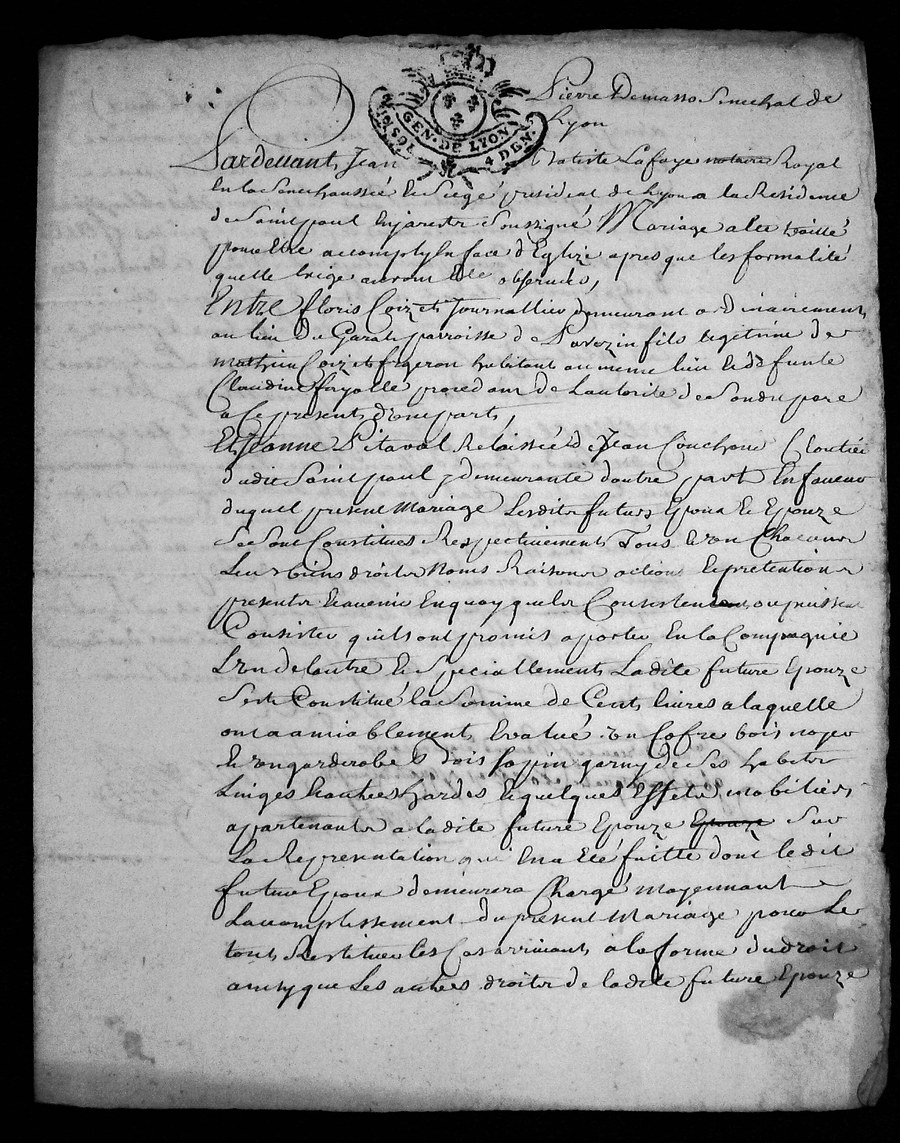 Pierre Demasso Senechal de
Lyon
GEN. DE LYON
1 SOL 4 DEN.
Pardevant Jean Batiste Lafaye notaire Royal
En la Senechaussée et Siege presidial de Lyon a la Residence
de Saint paul En jarest Soussigné Mariage a Eté traitté
pour Etre accomply En face d'Eglize apres que les formalité
quelle Exige auront Eté observées,
Entre floris Coizet Journallier demeurant ordinairement
au lieu du Garat parroisse de Pavezin fils legitime de
Mathieu Coizet habitant au même lieu et defunte
Claudine fayolle procedant de Lautorité de Sondit pere
a Ce present d'une part,
Et Jeanne Pitaval Relaissée de Jean Couchoux Cloutier
dudit Saint paul y demeurante dautre part En faveur
duquel present Mariage Lesdits futurs Epoux et Epouze
Se Sont Constitués Respectivement Tous Et un Chacuns
Leurs biens droits Noms Raisons actions et pretentions
presents Et avenir En quoy quels Consistent ou puissent
Consister quils ont promis aporter En la Compagnie
Lun de lautre et Speciallement Ladite future Epouze
Sest Constitué la Somme de Cent livres a laquelle
ont a amiablement Evalué un Cofre bois noyer
Et un garderobe bois Sapin garny de Ses habits
Linges Et autres hardes Et quelques Effets mobiliers
appartenants a ladite future Epouze Epouze Sur
La Representation qui En a Eté faitte dont ledit
future Epoux demeurera Chargé moyennant
Laccomplissement du present Mariage pour Le
tout Restituer les Cas arrivants a la forme du droit
ainsy que Les autres droits de ladite future Epouze